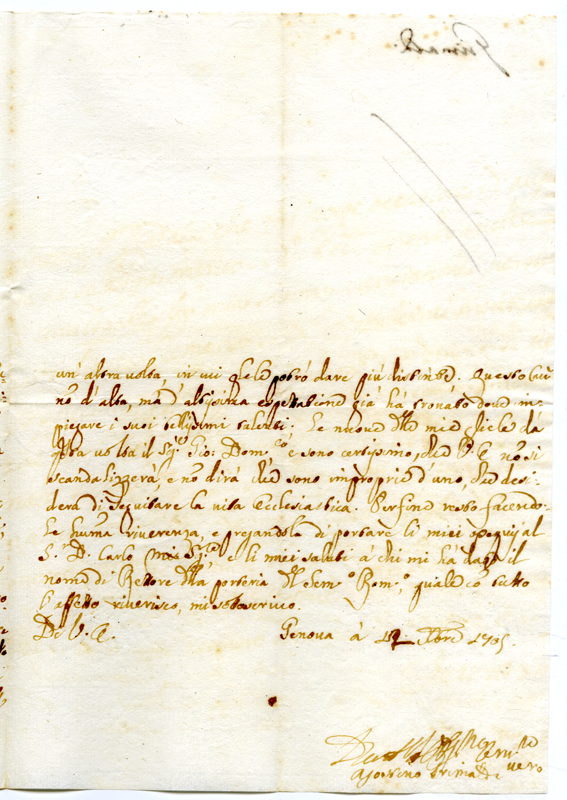 Grimald
un' altra volta, in cui gele potrò dare più distinte. Questo
no d'alta, ma d'altissima espettatione già hà trovato dove im-
piegare i suoi bellissimi talenti. Le nuove mie gliele dà
volta il Sig.r Gio: Dom.co e sono certissimo, che V. E. nõ si
scandalizzerà, e nõ dirà che sono improprie d'uno, che desi-
dera di seguitare la vita Ecclesiastica. Per fine resto facendo-
le huma riverenza, e pregandola di portare li miei ossequij al
S.r D. Carlo mio e li miei saluti à chi mi hà dato il
nome di Rettore porteria Sem.o Rom.o, quale cõ tutto
l'affetto riverisco, mi sottoscrivo.
Di V. E. Genova à 12 1705.
Agostino Grimaldi